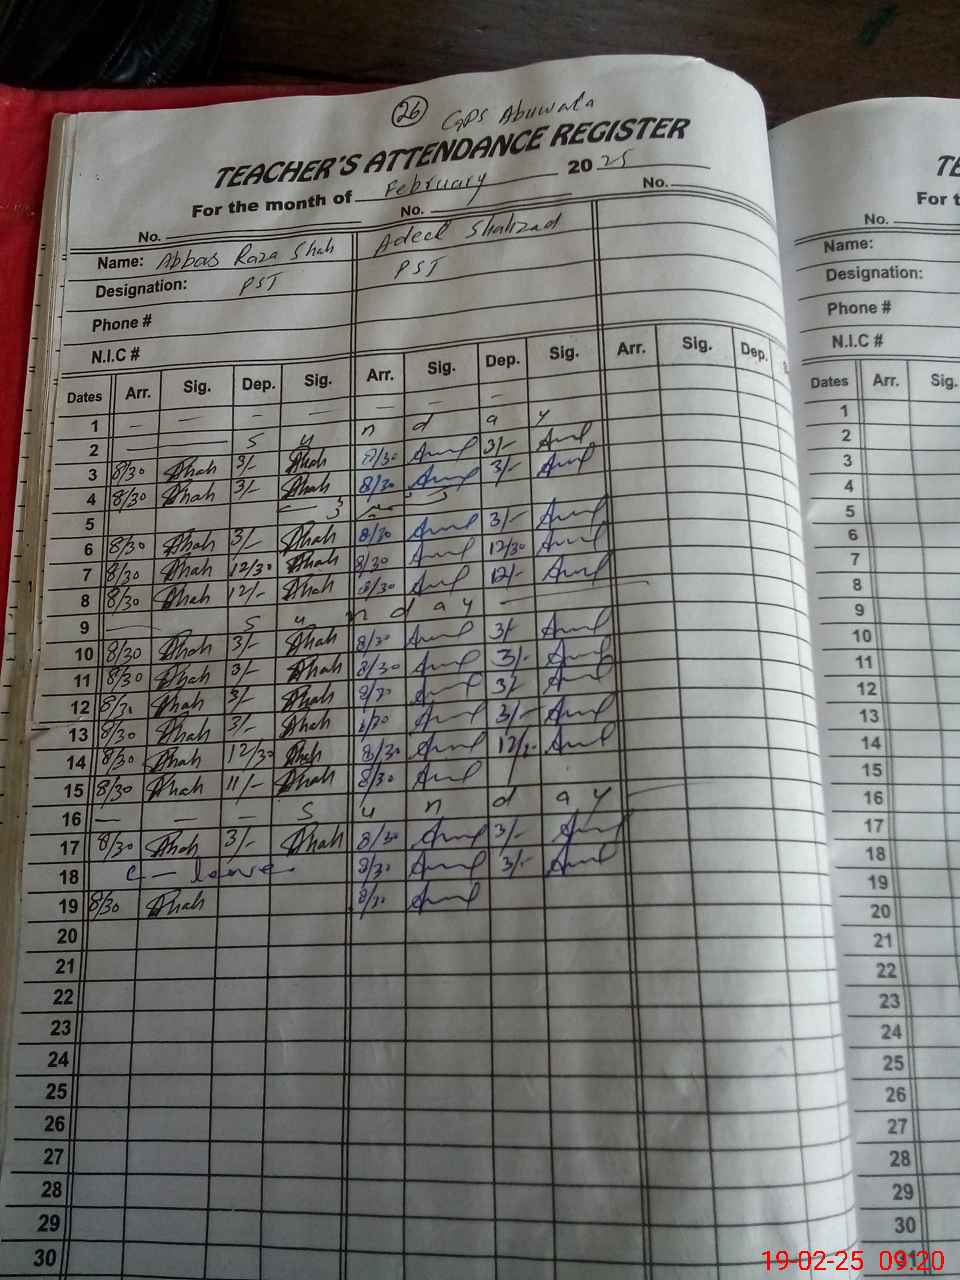 26 GPS Abuwala
TEACHER'S ATTENDANCE REGISTER
For the month of February 2025
No. No. No.
Name: Abbas Raza Shah Adeel Shahzad
Designation: PST PST
Phone #
N.I.C #
Dates Arr. Sig. Dep. Sig. Arr. Sig. Dep. Sig. Arr. Sig. Dep.
1 — — — — — — —
2 — S u n d a y
3 8/30 Shah 3/- Shah 8/30 3/-
4 8/30 Shah 3/- Shah 8/30 3/-
5
6 8/30 Shah 3/- Shah 8/30 3/-
7 8/30 Shah 12/30 Shah 8/30 12/30
8 8/30 Shah 12/- Shah 8/30 12/-
9 — S u n d a y —
10 8/30 Shah 3/- Shah 8/30 3/-
11 8/30 Shah 3/- Shah 8/30 3/-
12 8/30 Shah 3/- Shah 8/30 3/-
13 8/30 Shah 3/- Shah 8/30 3/-
14 8/30 Shah 12/30 Shah 8/30
15 8/30 Shah 11/- Shah 8/30
16 — — — S u n d a y
17 8/30 Shah 3/- Shah 8/30 3/-
18 C - leave 8/30 3/-
19 8/30 Shah 8/30
20
21
22
23
24
25
26
27
28
29
30
For t
No.
Name:
Designation:
Phone #
N.I.C #
Dates Arr. Sig.
1
2
3
4
5
6
7
8
9
10
11
12
13
14
15
16
17
18
19
20
21
22
23
24
25
26
27
28
29
30
31
19-02-25 09:20